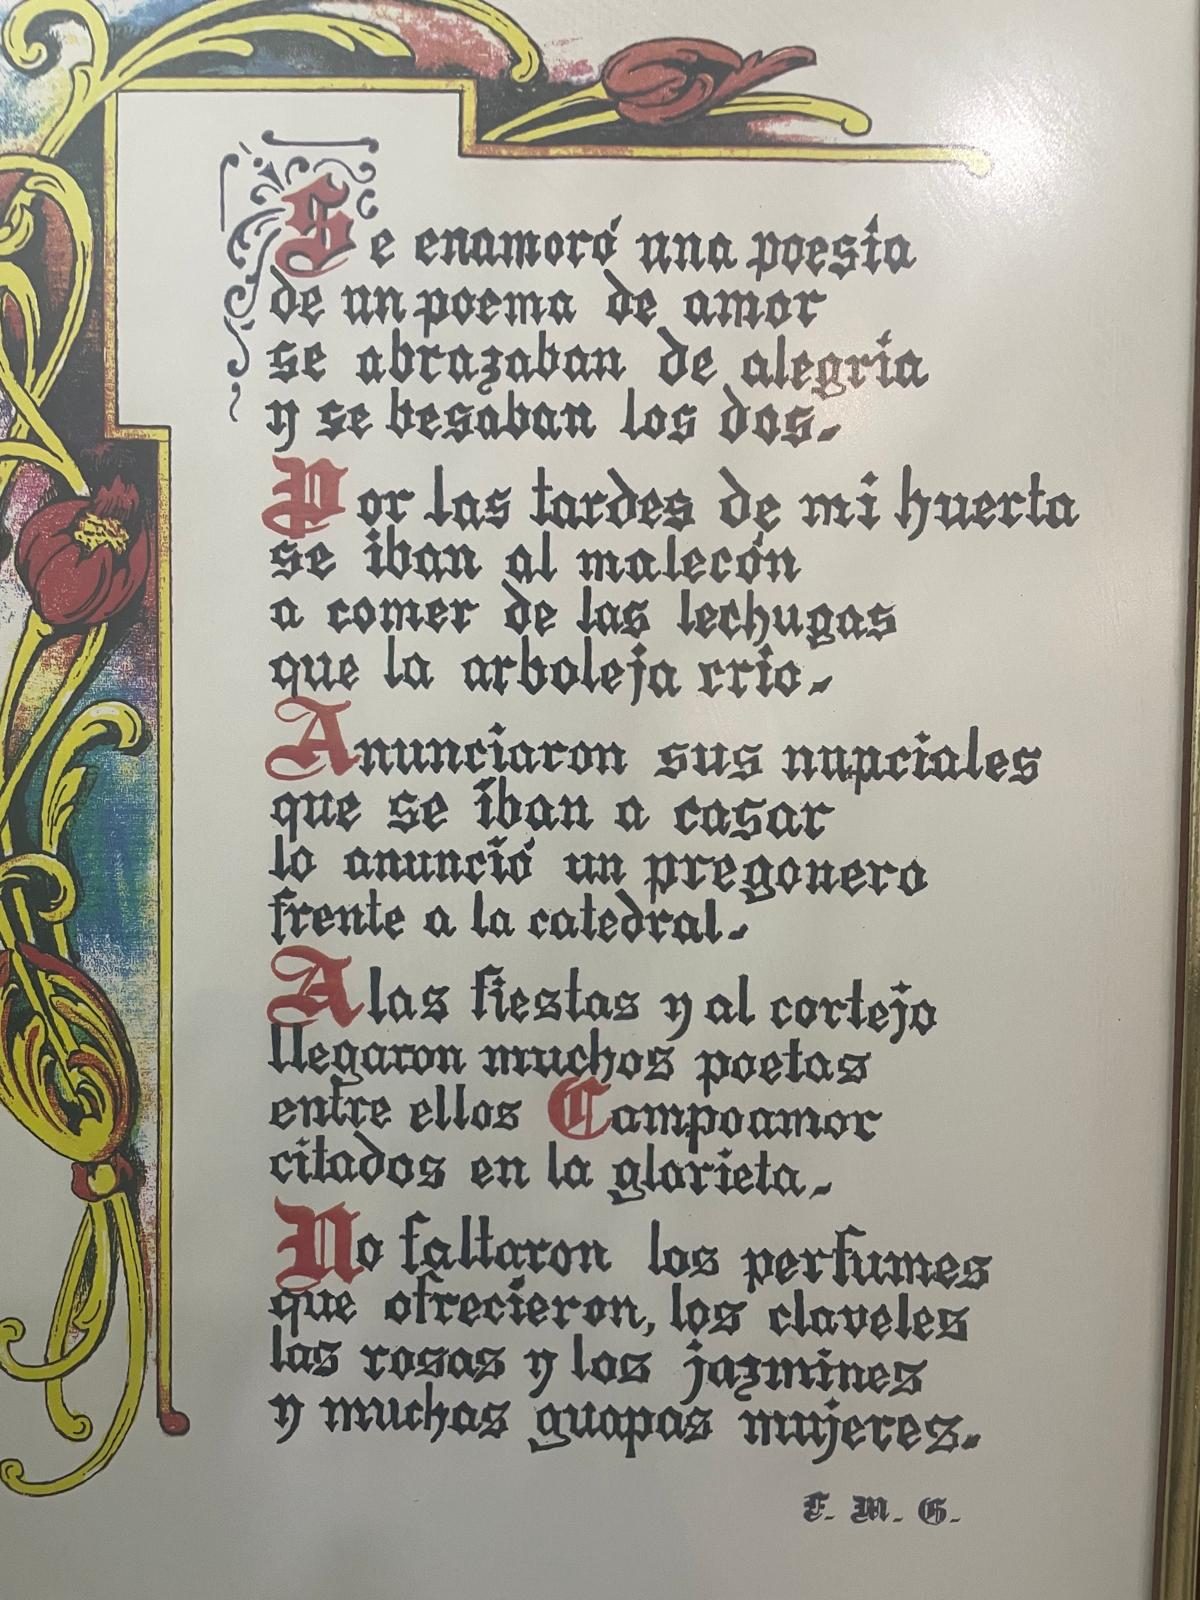 Se enamoró una poesía
de un poema de amor
se abrazaban de alegría
y se besaban los dos.
Por las tardes de mi huerta
se iban al malecón
a comer de las lechugas
que la arboleja crio.
Anunciaron sus nupciales
que se iban a casar
lo anunció un pregonero
frente a la catedral.
A las fiestas y al cortejo
llegaron muchos poetas
entre ellos Campoamor
citados en la glorieta.
No faltaron los perfumes
que ofrecieron, los claveles
las rosas y los jazmines
y muchas guapas mujeres.
F. M. G.